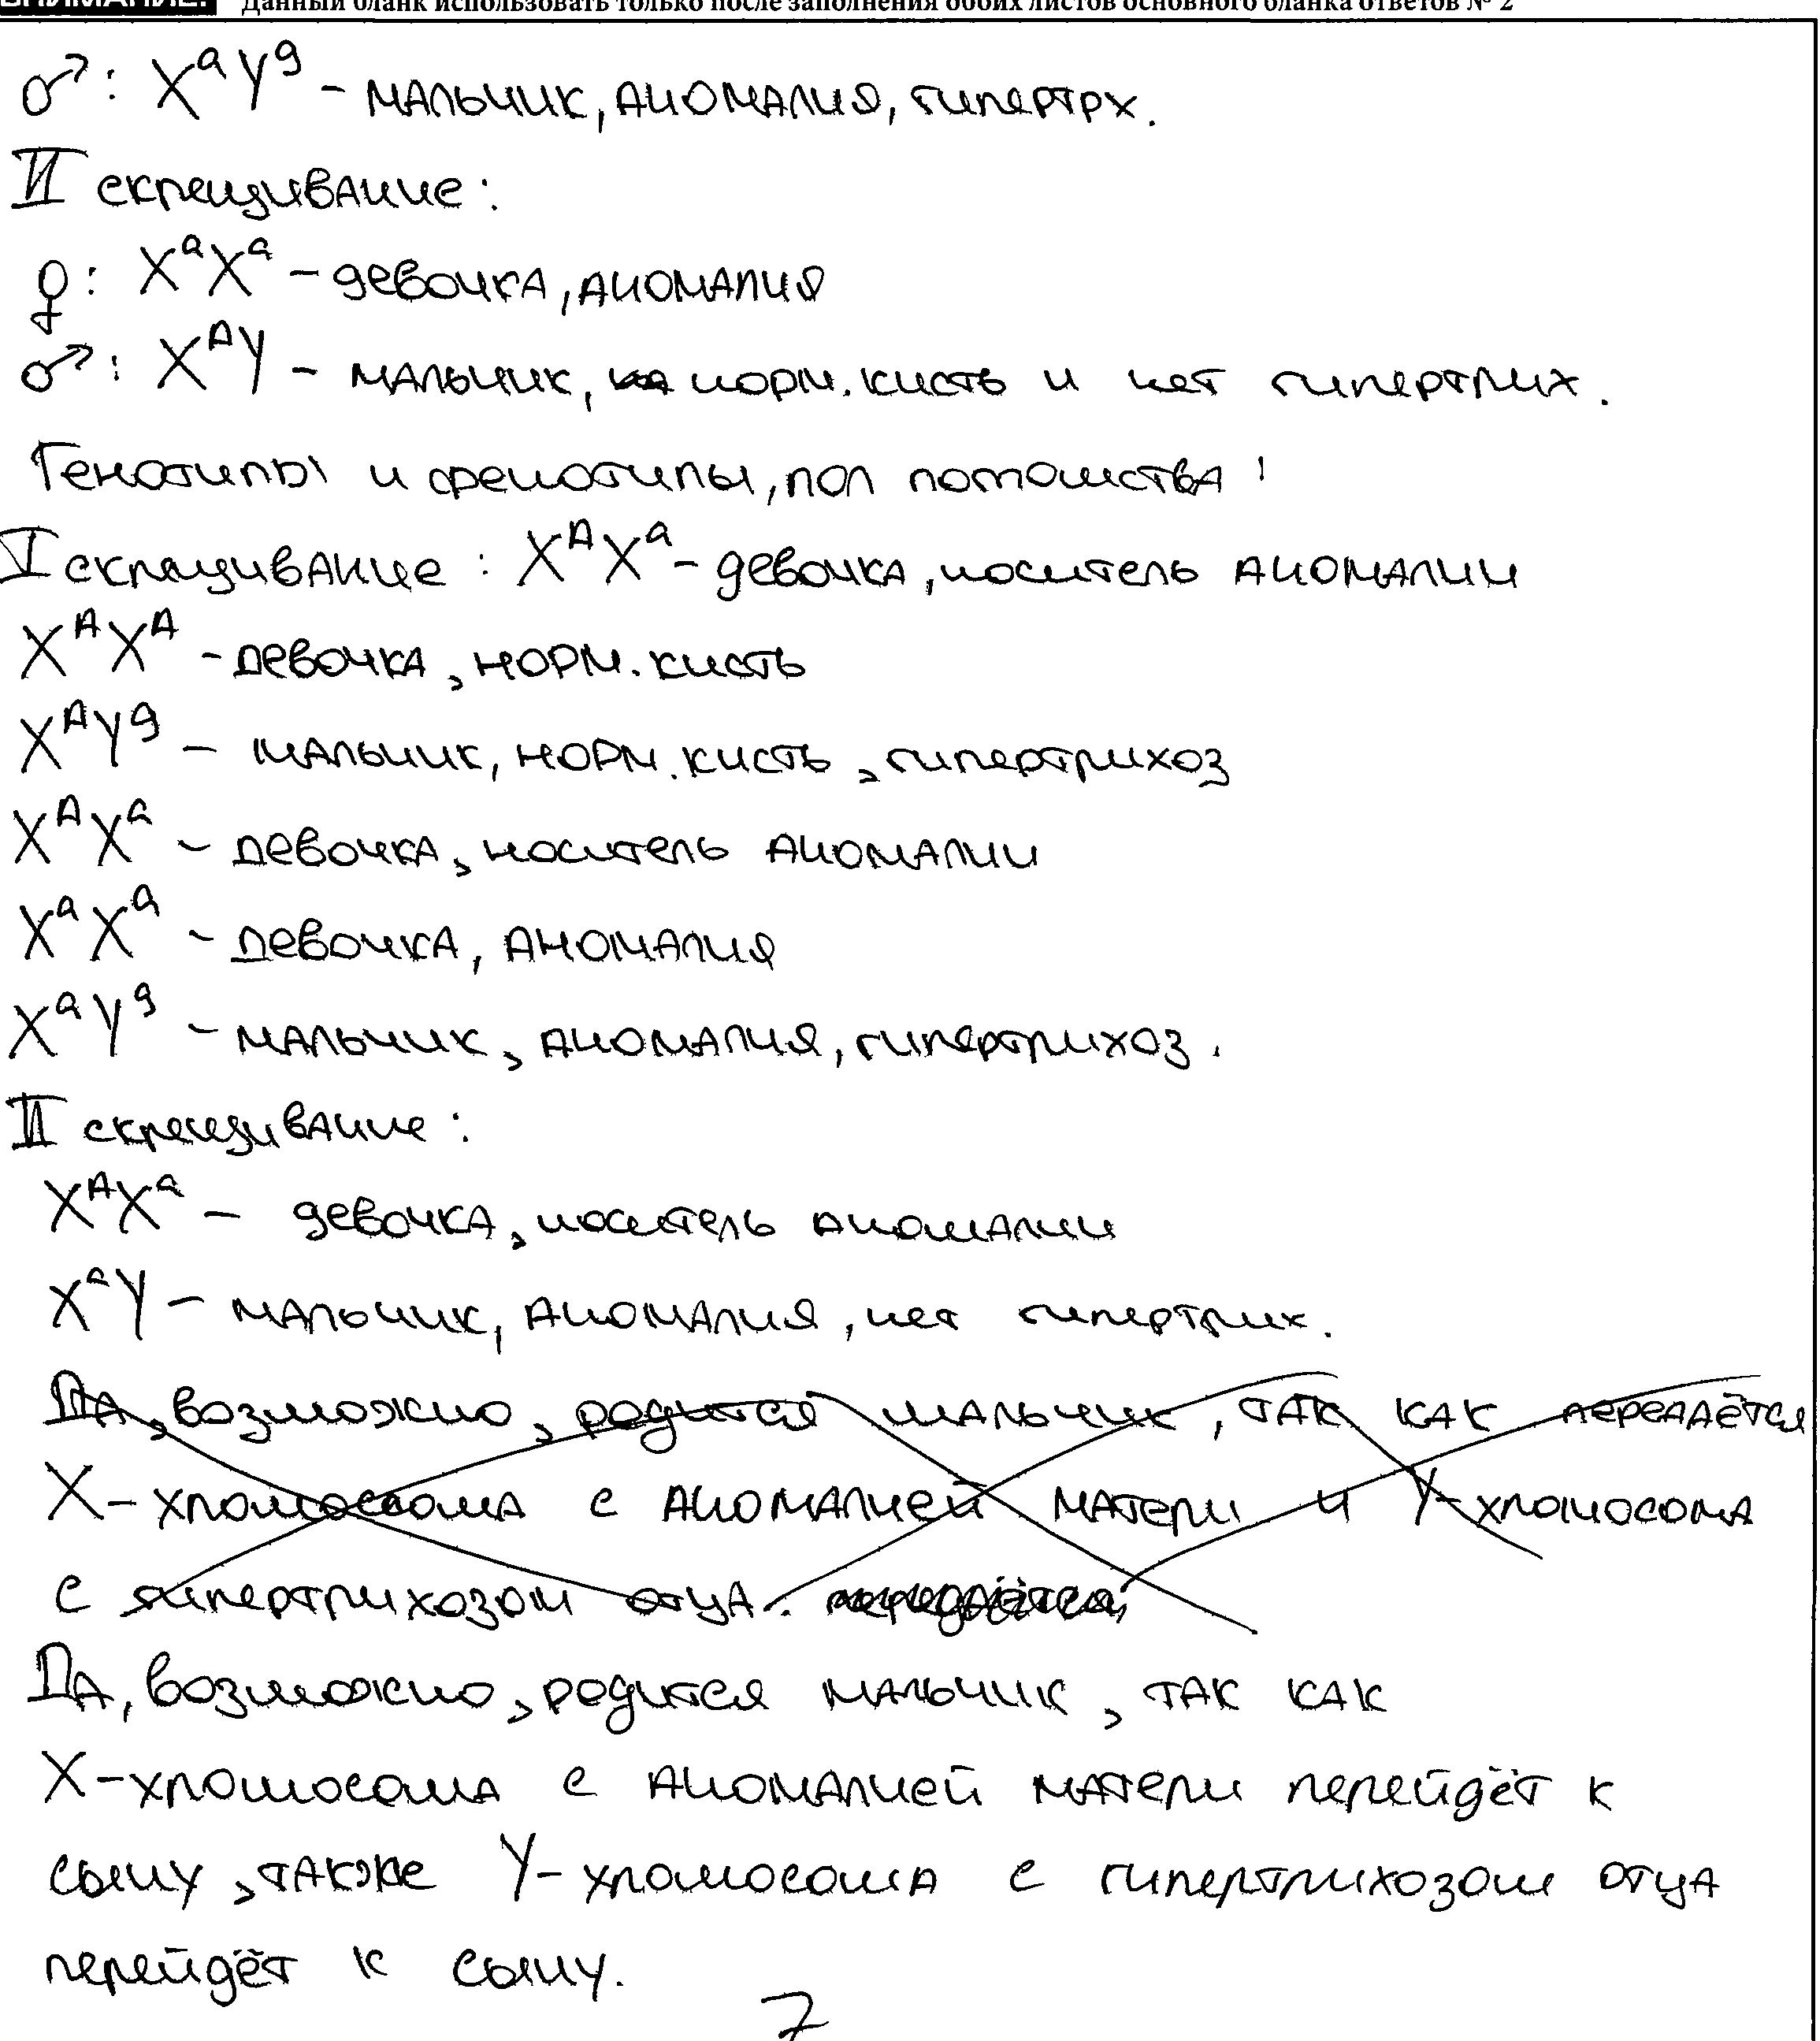 ВНИМАНИЕ! Данный бланк использовать только после заполнения обоих листов основного бланка ответов № 2
♂: XᵃYᵍ – мальчик, аномалия, гипертрх.
II скрещивание:
♀: XᵃXᵃ – девочка, аномалия
♂: XᴬY – мальчик, норм. кисть и нет гипертрих.
Генотипы и фенотипы, пол потомства:
I скрещивание: XᴬXᵃ – девочка, носитель аномалии
XᴬXᴬ – девочка, норм. кисть
XᴬYᵍ – мальчик, норм. кисть, гипертрихоз
XᴬXᵃ – девочка, носитель аномалии
XᵃXᵃ – девочка, аномалия
XᵃYᵍ – мальчик, аномалия, гипертрихоз.
II скрещивание:
XᴬXᵃ – девочка, носитель аномалии
XᵃY – мальчик, аномалия, нет гипертрих.
Да, возможно, родится мальчик, так как передаётся
X-хромосома с аномалией матери и Y-хромосома
с гипертрихозом отца.
Да, возможно, родится мальчик, так как
X-хромосома с аномалией матери перейдёт к
сыну, также Y-хромосома с гипертрихозом отца
перейдёт к сыну.